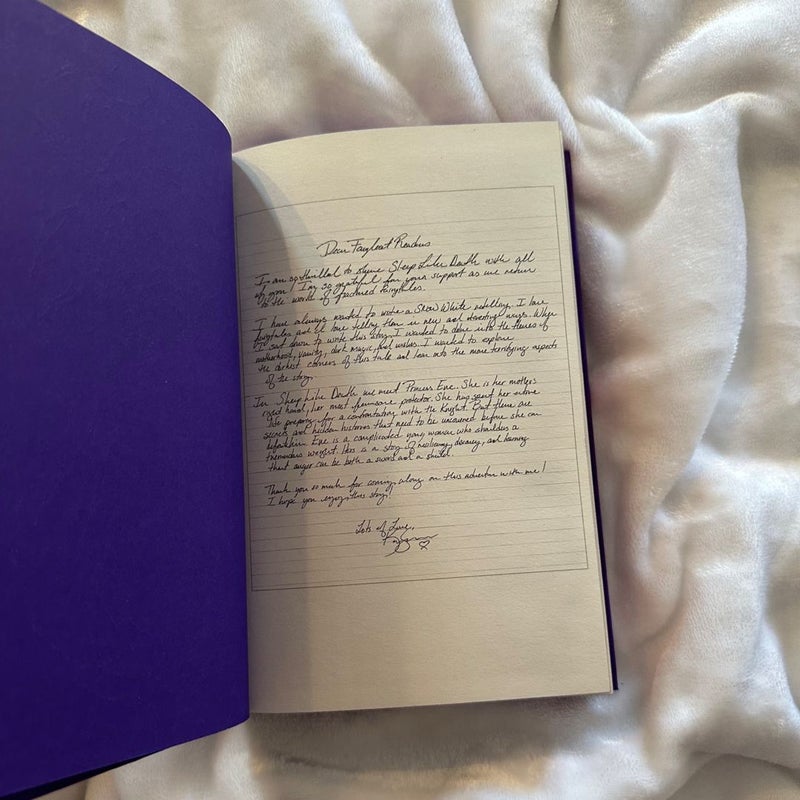 Dear Fairyloot Readers
I am so thrilled to share Sleep Like Death with all
of you! I'm so grateful for your support as we return
to the world of fractured fairytales.
I have always wanted to write a Snow White retelling. I love
fairytales and I love telling them in new and interesting ways. When
I sat down to write this story, I wanted to delve into the themes of
motherhood, vanity, dark magic, and wishes. I wanted to explore
the darkest corners of this tale and lean into the more terrifying aspects
of the story.
In Sleep Like Death we meet Princess Eve. She is her mother's
right hand, her most fearsome protector. She has spent her entire
life preparing for a confrontation with the Knight. But there are
secrets and hidden histories that need to be uncovered before she can
defeat him. Eve is a complicated young woman who shoulders a
tremendous weight. Hers is a story of resiliency, bravery, and learning
that anger can be both a sword and a shield.
Thank you so much for coming along on this adventure with me!
I hope you enjoy this story!
Lots of Love,